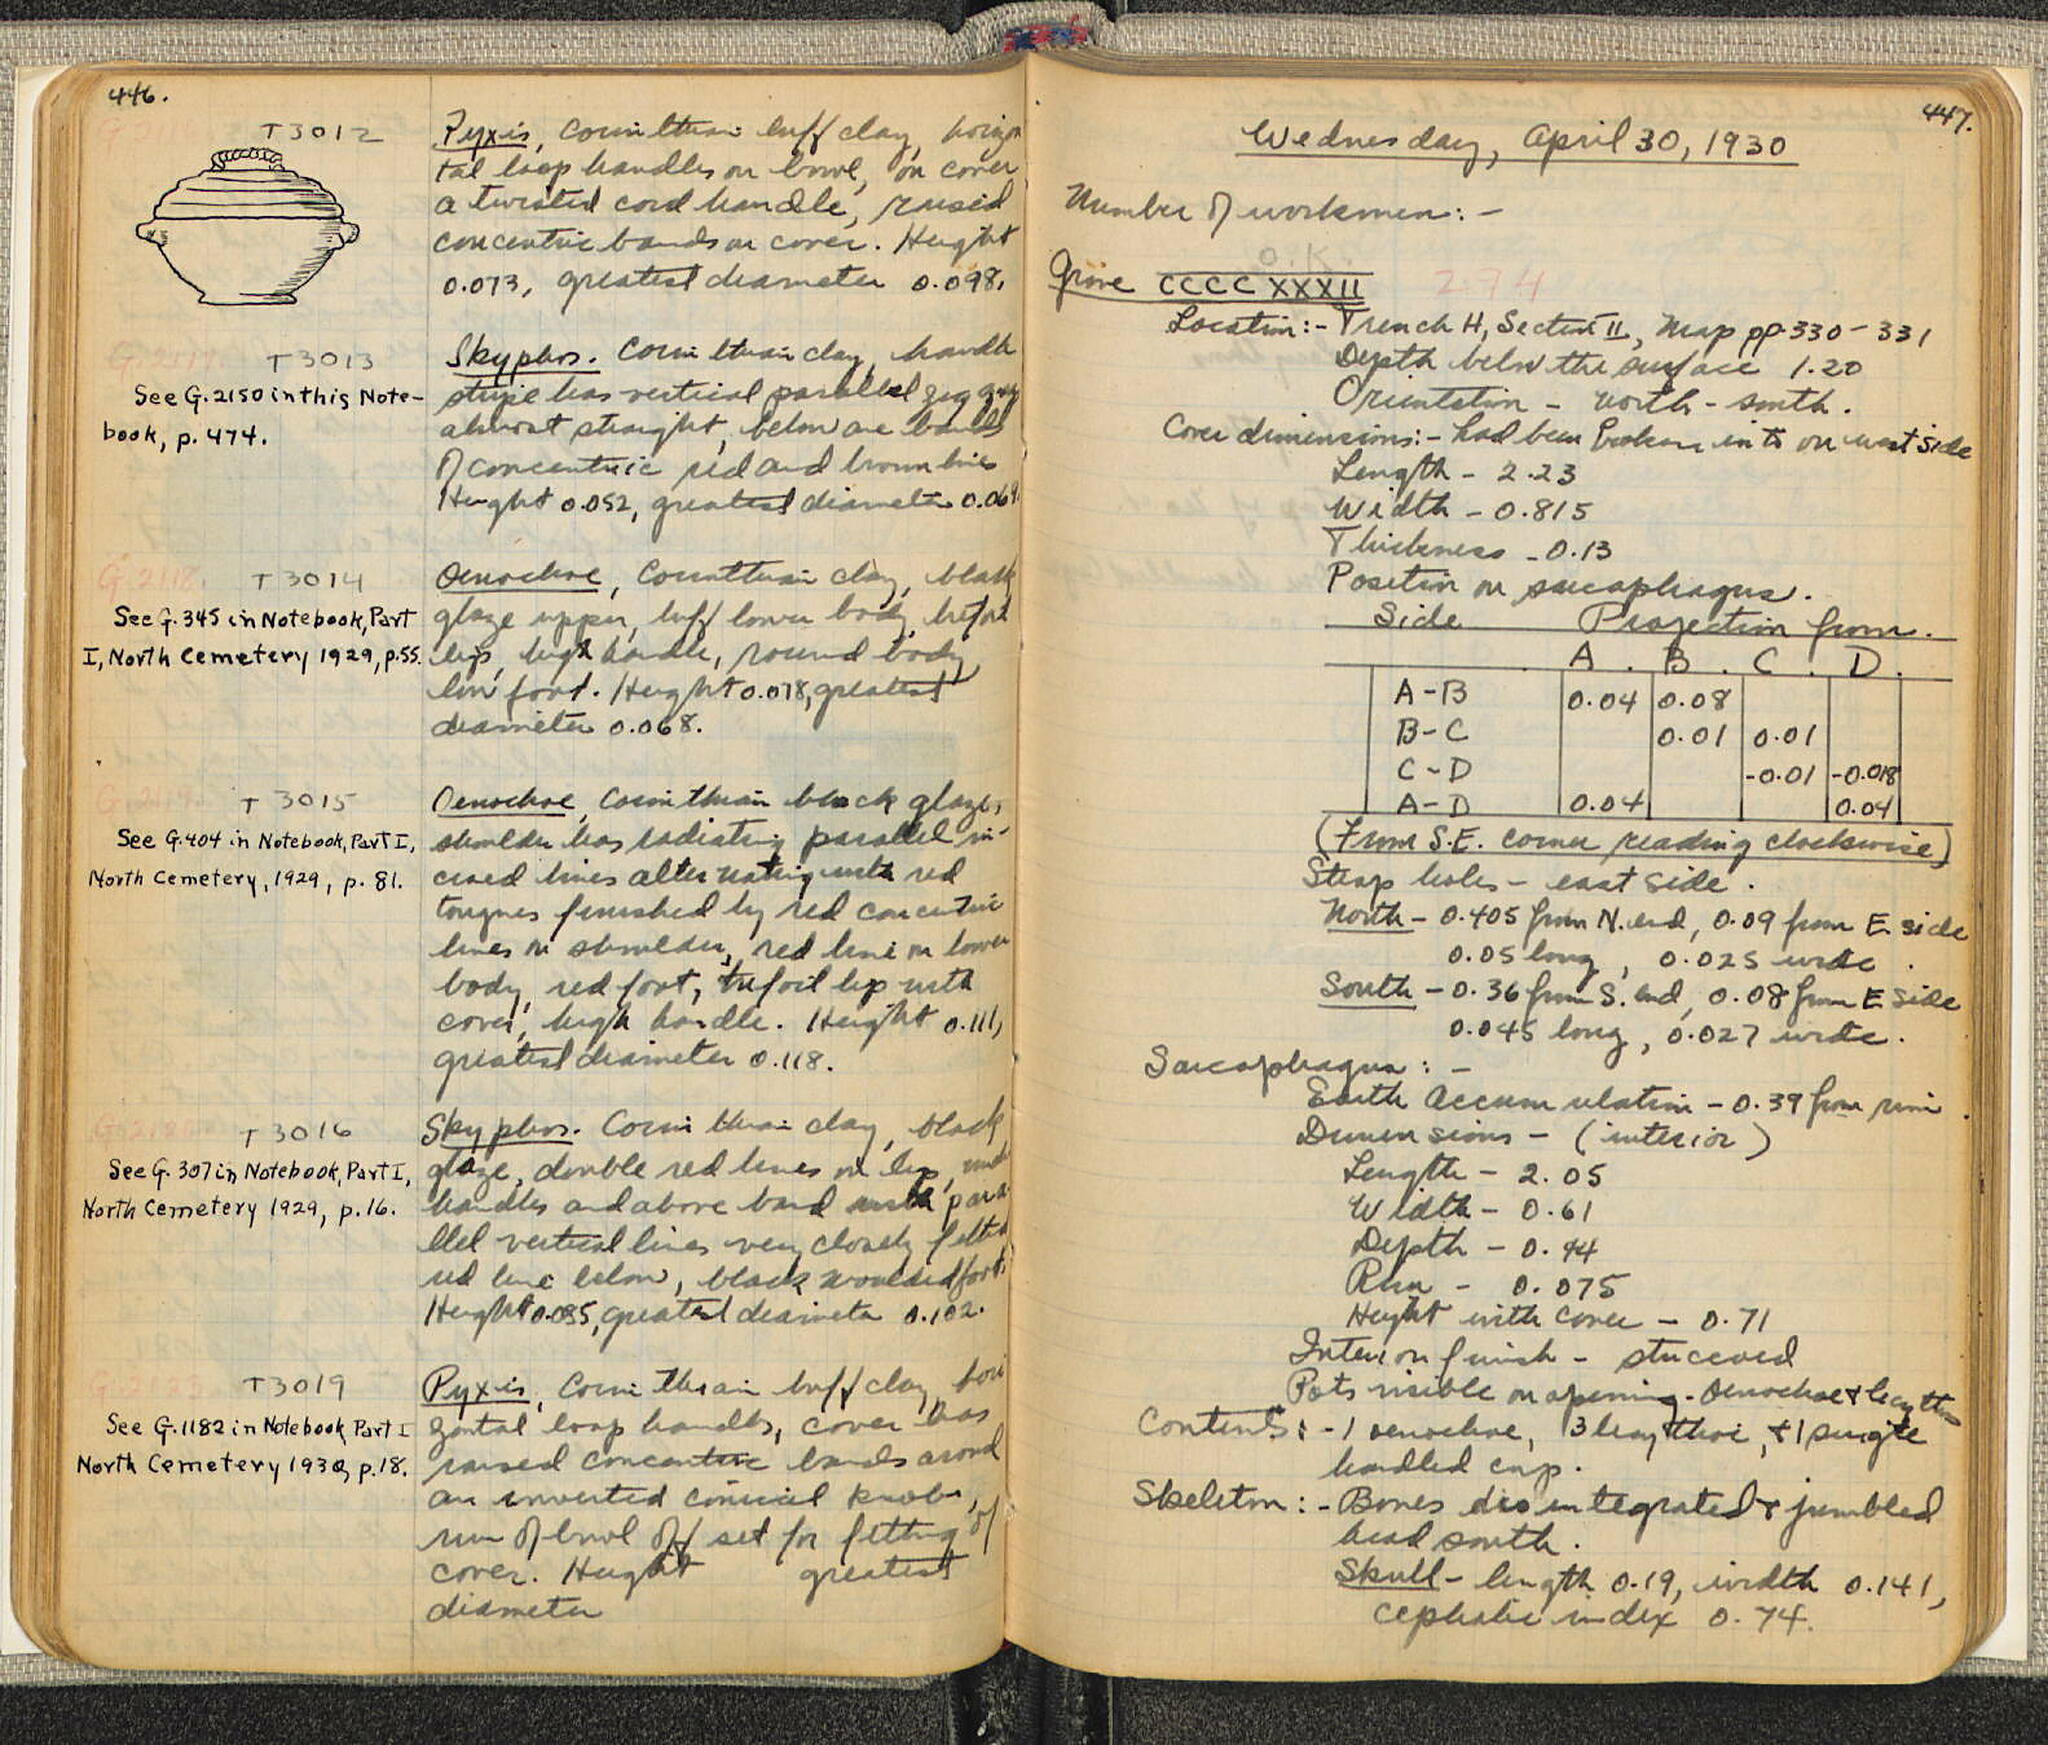 446.
T 3012
Pyxis, Corinthian buff clay, horizon
tal loop handles on bowl, on cover
a twisted cord handle, raised
concentric bands on cover. Height
0.073, greatest diameter 0.098.
T 3013
See G.2150 in this Note-
book, p. 474.
Skyphos. Corinthian clay, handle
stripe has vertical parallel zig zag
almost straight, below are bands
of concentric red and brown lines
Height 0.052, greatest diameter 0.069.
G.2118. T 3014
See G.345 in Notebook, Part
I, North Cemetery 1929, p.55.
Oenochoe, Corinthian clay, black
glaze upper, buff lower body, trefoil
lip, high handle, round body
low foot. Height 0.078, greatest
diameter 0.068.
G.2119. T 3015
See G.404 in Notebook, Part I,
North Cemetery, 1929, p. 81.
Oenochoe, Corinthian black glaze,
shoulder has radiating parallel in-
cised lines alternating with red
tongues finished by red concentric
lines on shoulder, red line on lower
body, red foot, trefoil lip with
cover, high handle. Height 0.111,
greatest diameter 0.118.
T 3016
See G. 307 in Notebook, Part I,
North Cemetery 1929, p.16.
Skyphos. Corinthian clay, black
glaze, double red lines on lip, under
handles and above band with para-
llel vertical lines very closely fitted
red line below, black moulded foot.
Height 0.085, greatest diameter 0.102.
T3019
See G.1182 in Notebook Part I
North Cemetery 1930, p.18.
Pyxis, Corinthian buff clay, hori
zontal loop handles, cover has
raised concentric bands around
an inverted conical knob,
rim of bowl off set for fitting of
cover. Height greatest
diameter
447.
Wednesday, April 30, 1930
Number of workmen: -
O.K.
Grave CCCC XXXII 274
Location:- Trench H, Section II, Map pp 330-331
Depth below the surface 1.20
Orientation - north - south.
Cover dimensions:- had been broken into on west side
Length - 2.23
Width - 0.815
Thickness - 0.13
Position on sarcophagus.
Side Projection from.
A. B. C. D.
A-B 0.04 0.08
B-C 0.01 0.01
C-D -0.01 -0.018
A-D 0.04 0.04
(From S.E. corner reading clockwise)
Strap holes - east side.
North - 0.405 from N. end, 0.09 from E. side
0.05 long, 0.025 wide.
South - 0.36 from S. end, 0.08 from E side
0.045 long, 0.027 wide.
Sarcophagus: -
Earth accumulation - 0.39 from rim.
Dimensions - (interior)
Length - 2.05
Width - 0.61
Depth - 0.44
Rim - 0.075
Height with cover - 0.71
Interior finish - stuccoed
Pots visible on opening - Oenochoe & lecythoi
Contents: - 1 oenochoe, 3 lecythoi, + 1 single
handled cup.
Skeleton: - Bones disintegrated & jumbled
head south.
Skull - length 0.19, width 0.141,
cephalic index 0.74.